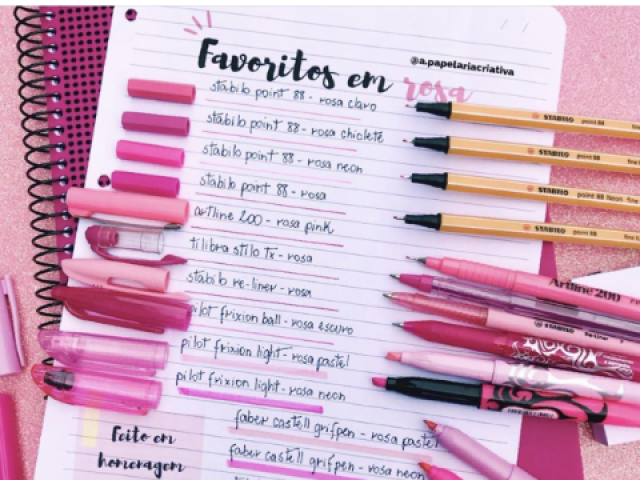 Favoritos em rosa
@a.papelariacriativa
stabilo point 88 - rosa claro
stabilo point 88 - rosa chiclete
stabilo point 88 - rosa neon
stabilo point 88 - rosa
artline 200 - rosa pink
tilibra stilo tx - rosa
stabilo re-liner - rosa
pilot frixion ball - rosa escuro
pilot frixion light - rosa pastel
pilot frixion light - rosa neon
faber castell grifpen - rosa pastel
faber castell grifpen - rosa neon
Feito em
homenagem
STABILO point 88
STABILO point 88
STABILO point 88 Neon
STABILO point 88
Artline 200
STABILO